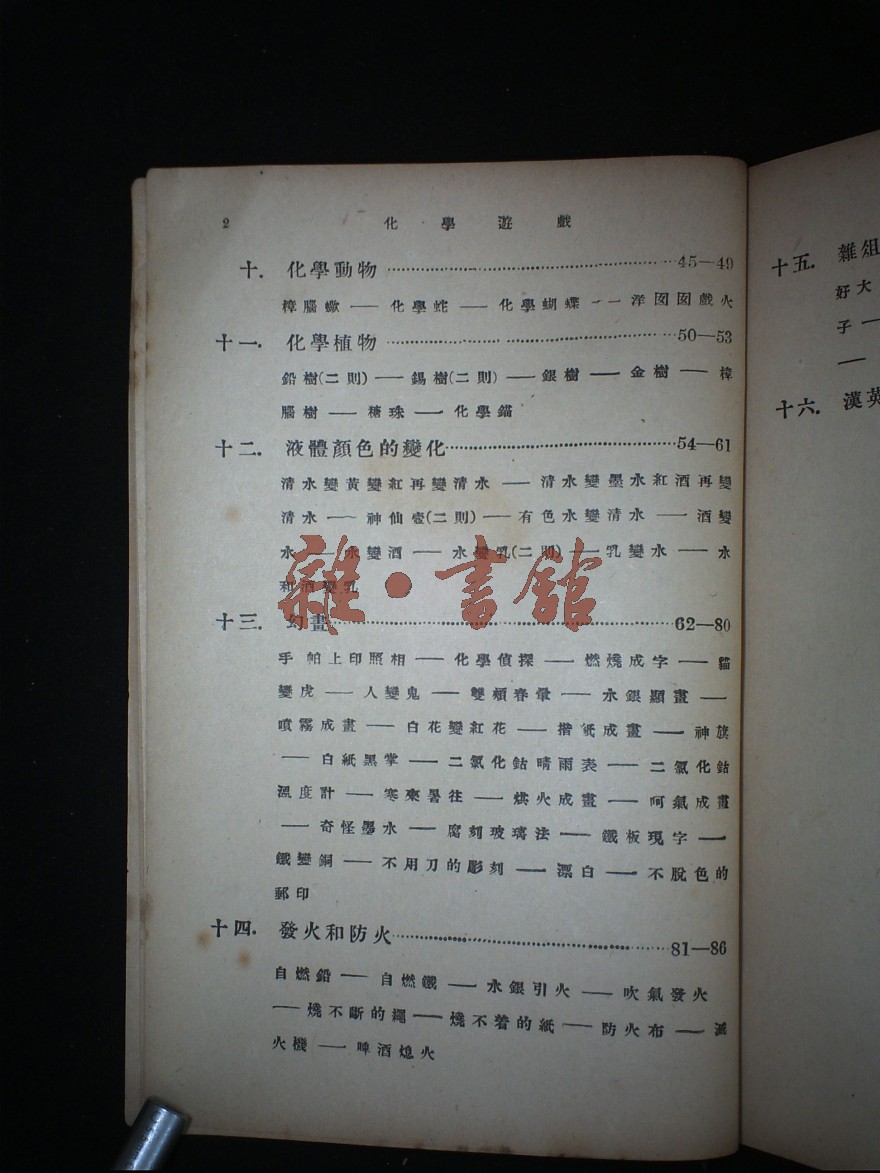 2 化學遊戲
十. 化學動物 45—49
樟腦蠍 — 化學蛇 — 化學蝴蝶 — 洋囡囡戲火
十一. 化學植物 50—53
鉛樹(二則) — 錫樹(二則) — 銀樹 — 金樹 — 樟
腦樹 — 糖珠 — 化學錨
十二. 液體顏色的變化 54—61
清水變黃變紅再變清水 — 清水變墨水紅酒再變
清水 — 神仙壺(二則) — 有色水變清水 — 酒變
水 — 水變酒 — 水變乳(二則) — 乳變水 — 水
和酒變乳
十三. 幻畫 62—80
手帕上印照相 — 化學偵探 — 燃燒成字 — 貓
變虎 — 人變鬼 — 雙頰春暈 — 水銀顯畫 —
噴霧成畫 — 白花變紅花 — 揩紙成畫 — 神旗
— 白紙黑掌 — 二氯化鈷晴雨表 — 二氯化鈷
溫度計 — 寒來暑往 — 烘火成畫 — 呵氣成畫
— 奇怪墨水 — 腐刻玻璃法 — 鐵板現字 —
鐵變銅 — 不用刀的彫刻 — 漂白 — 不脫色的
郵印
十四. 發火和防火 81—86
自燃鉛 — 自燃鐵 — 水銀引火 — 吹氣發火
— 燒不斷的繩 — 燒不着的紙 — 防火布 — 滅
火機 — 啤酒熄火
雜·書館
十五. 雜俎
好大
子 —
—
十六. 漢英